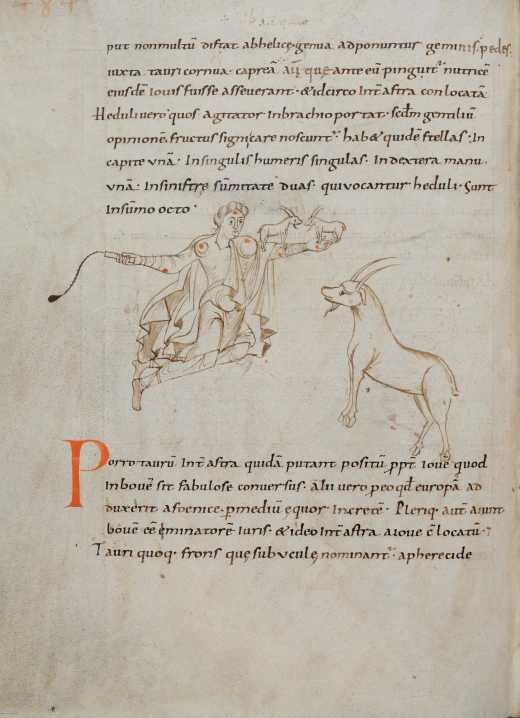 put nonmultū distat abhelice· genua adponuntur geminis· pedes
iuxta tauri cornua· capreā aut̄ que ante eū pingit᷒ nutricē
eiusdē iouis fuisse asseverant· & idcirco int̄ astra conlocatā
Heduli vero quos agitator inbrachio portat· scdm̄ gentiliū
opinionē· fructus significare noscunt᷒· hab& quidē stellas· In
capite unā· Insingulis humeris singulas· Indextera manu·
unā· Insinistre sūmitate duas· qui vocantur heduli· Sunt
Insūmo octo·
Porro taurū int̄ astra quidā putant positū ppt̄ iovē quod
Inbovē sit fabulose conversus· alii vero, peo qd̄ europam ad
duxerit afoenice· pmediū equor Incretē· Pleriq· aut̄ aiunt
bovē eē· eminatorē iuris· & ideo Int̄ astra aiove ē locatū·
Tauri quoq· frons que subvcule nominant᷒· apherecide